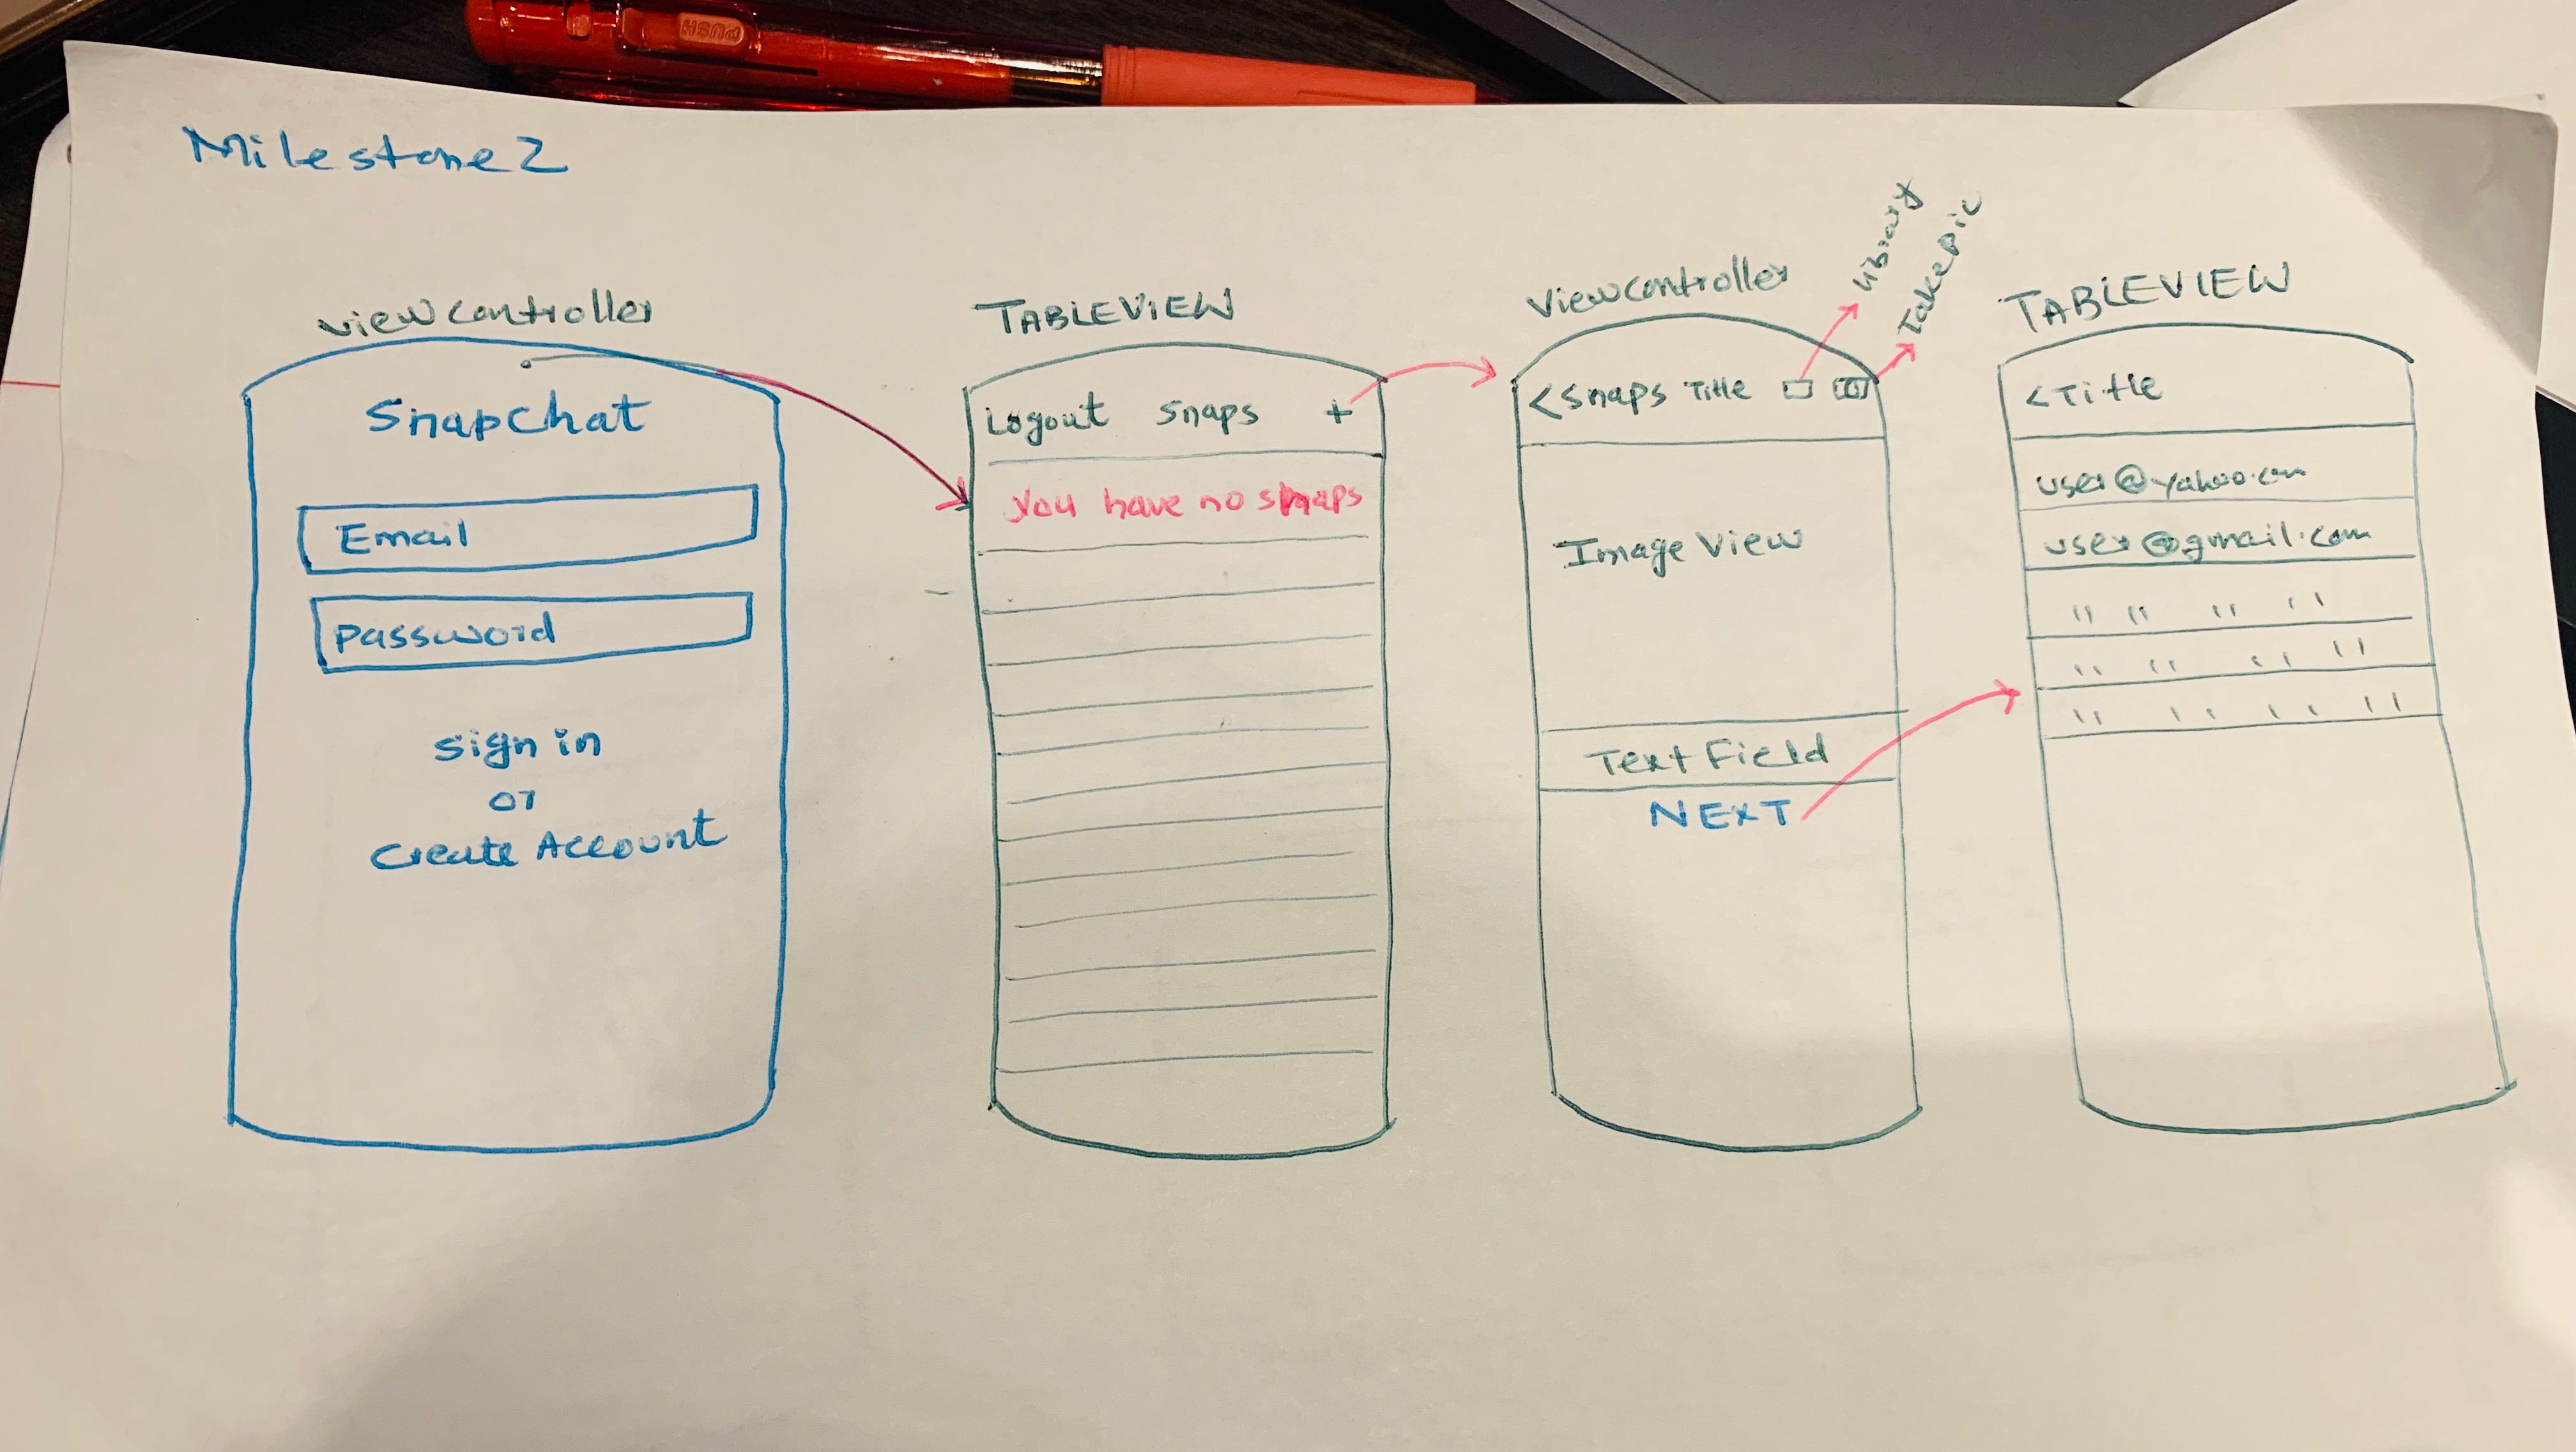 PUSH
Milestone 2
viewcontroller
Snapchat
Email
password
sign in
or
Create Account
TABLEVIEW
Logout snaps +
You have no snaps
Viewcontroller
library
Take pic
< snaps Title
Image View
Text Field
NEXT
TABLEVIEW
< Title
user@yahoo.com
user@gmail.com
" " " "
" " " "
" " " "